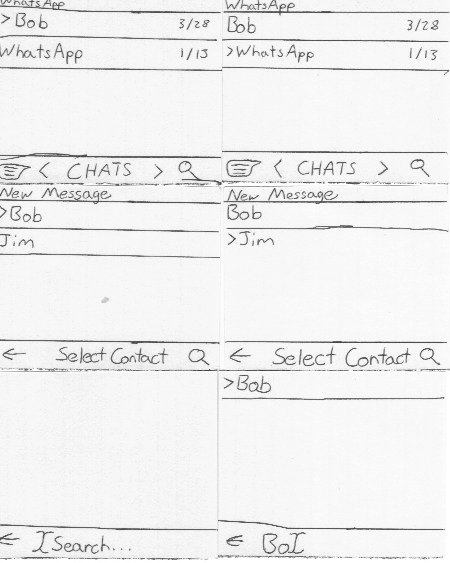 WhatsApp
> Bob 3/28
WhatsApp 1/13
< CHATS >
WhatsApp
Bob 3/28
>WhatsApp 1/13
< CHATS >
New Message
>Bob
Jim
← Select Contact
New Message
Bob
>Jim
← Select Contact
← Search...
>Bob
← Bo